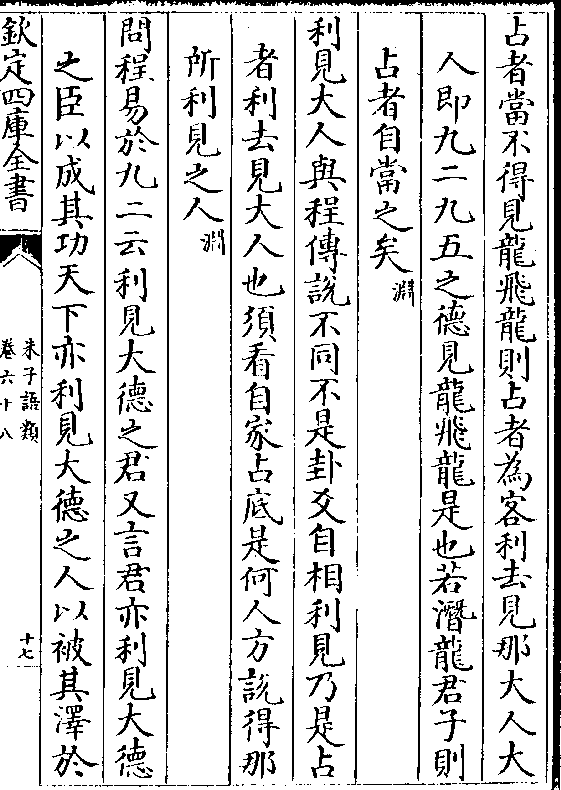 占者當不得見龍飛龍則占者為客利去見那大人大
人即九二九五之德見龍飛龍是也若潛龍君子則
占者自當之矣淵
利見大人與程傳說不同不是卦爻自相利見乃是占
者利去見大人也須看自家占底是何人方說得那
所利見之人淵
問程易於九二云利見大德之君又言君亦利見大德
之臣以成其功天下亦利見大德之人以被其澤於
欽定四庫全書
朱子語類
卷六十八
十七